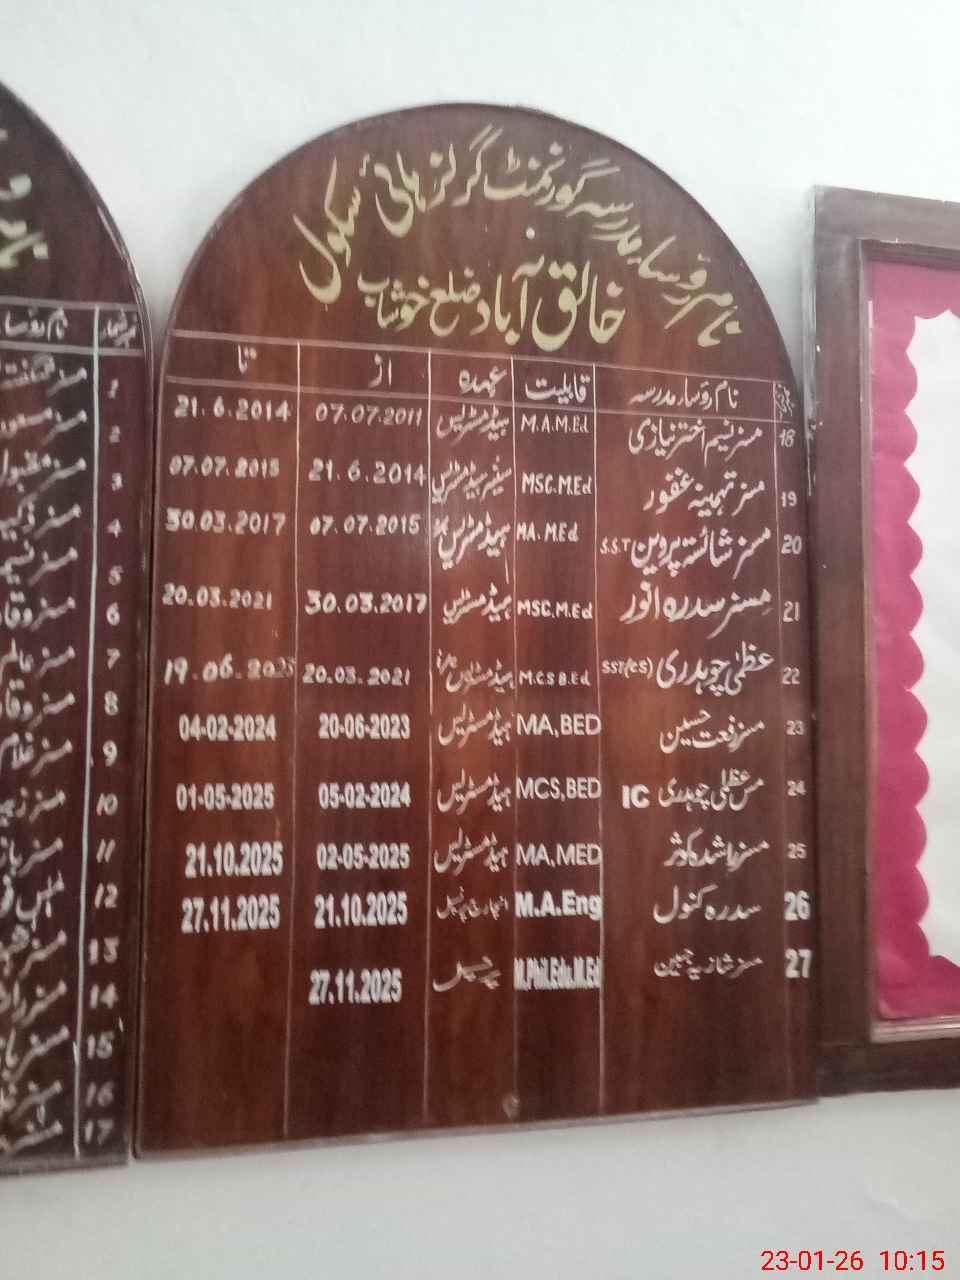 نام رؤساء مدرسہ گورنمنٹ گرلز ہائی سکول
خالق آباد ضلع خوشاب
نام رؤساء مدرسہ قابلیت عہدہ از تا
18 مسز نسیم اختر نیازی M.A.M.Ed ہیڈمسٹریس 07.07.2011 21.6.2014
19 مسز تہمینہ غفور MSC.M.Ed سینئر ہیڈمسٹریس 21.6.2014 07.07.2015
20 مسز شائستہ پروین S.S.T MA.M.Ed ہیڈمسٹریس 07.07.2015 30.03.2017
21 مسز سدرہ انور MSC.M.Ed ہیڈمسٹریس 30.03.2017 20.03.2021
22 عظمیٰ چوہدری SST(CS) M.CS B.Ed 20.03.2021 19.06.2023
23 مسز رفعت حسین MA,BED ہیڈمسٹریس 20-06-2023 04-02-2024
24 مس عظمیٰ چوہدری IC MCS,BED ہیڈمسٹریس 05-02-2024 01-05-2025
25 مسز راشدہ کوثر MA,MED ہیڈمسٹریس 02-05-2025 21.10.2025
26 سدرہ کنول M.A.Eng انچارج پرنسپل 21.10.2025 27.11.2025
27 مسز شازیہ جبین M.Phil.Edu.M.Ed پرنسپل 27.11.2025
نام رؤسا
1
2
3
4
5
6
7
8
9
10
11
12
13
14
15
16
17
23-01-26 10:15